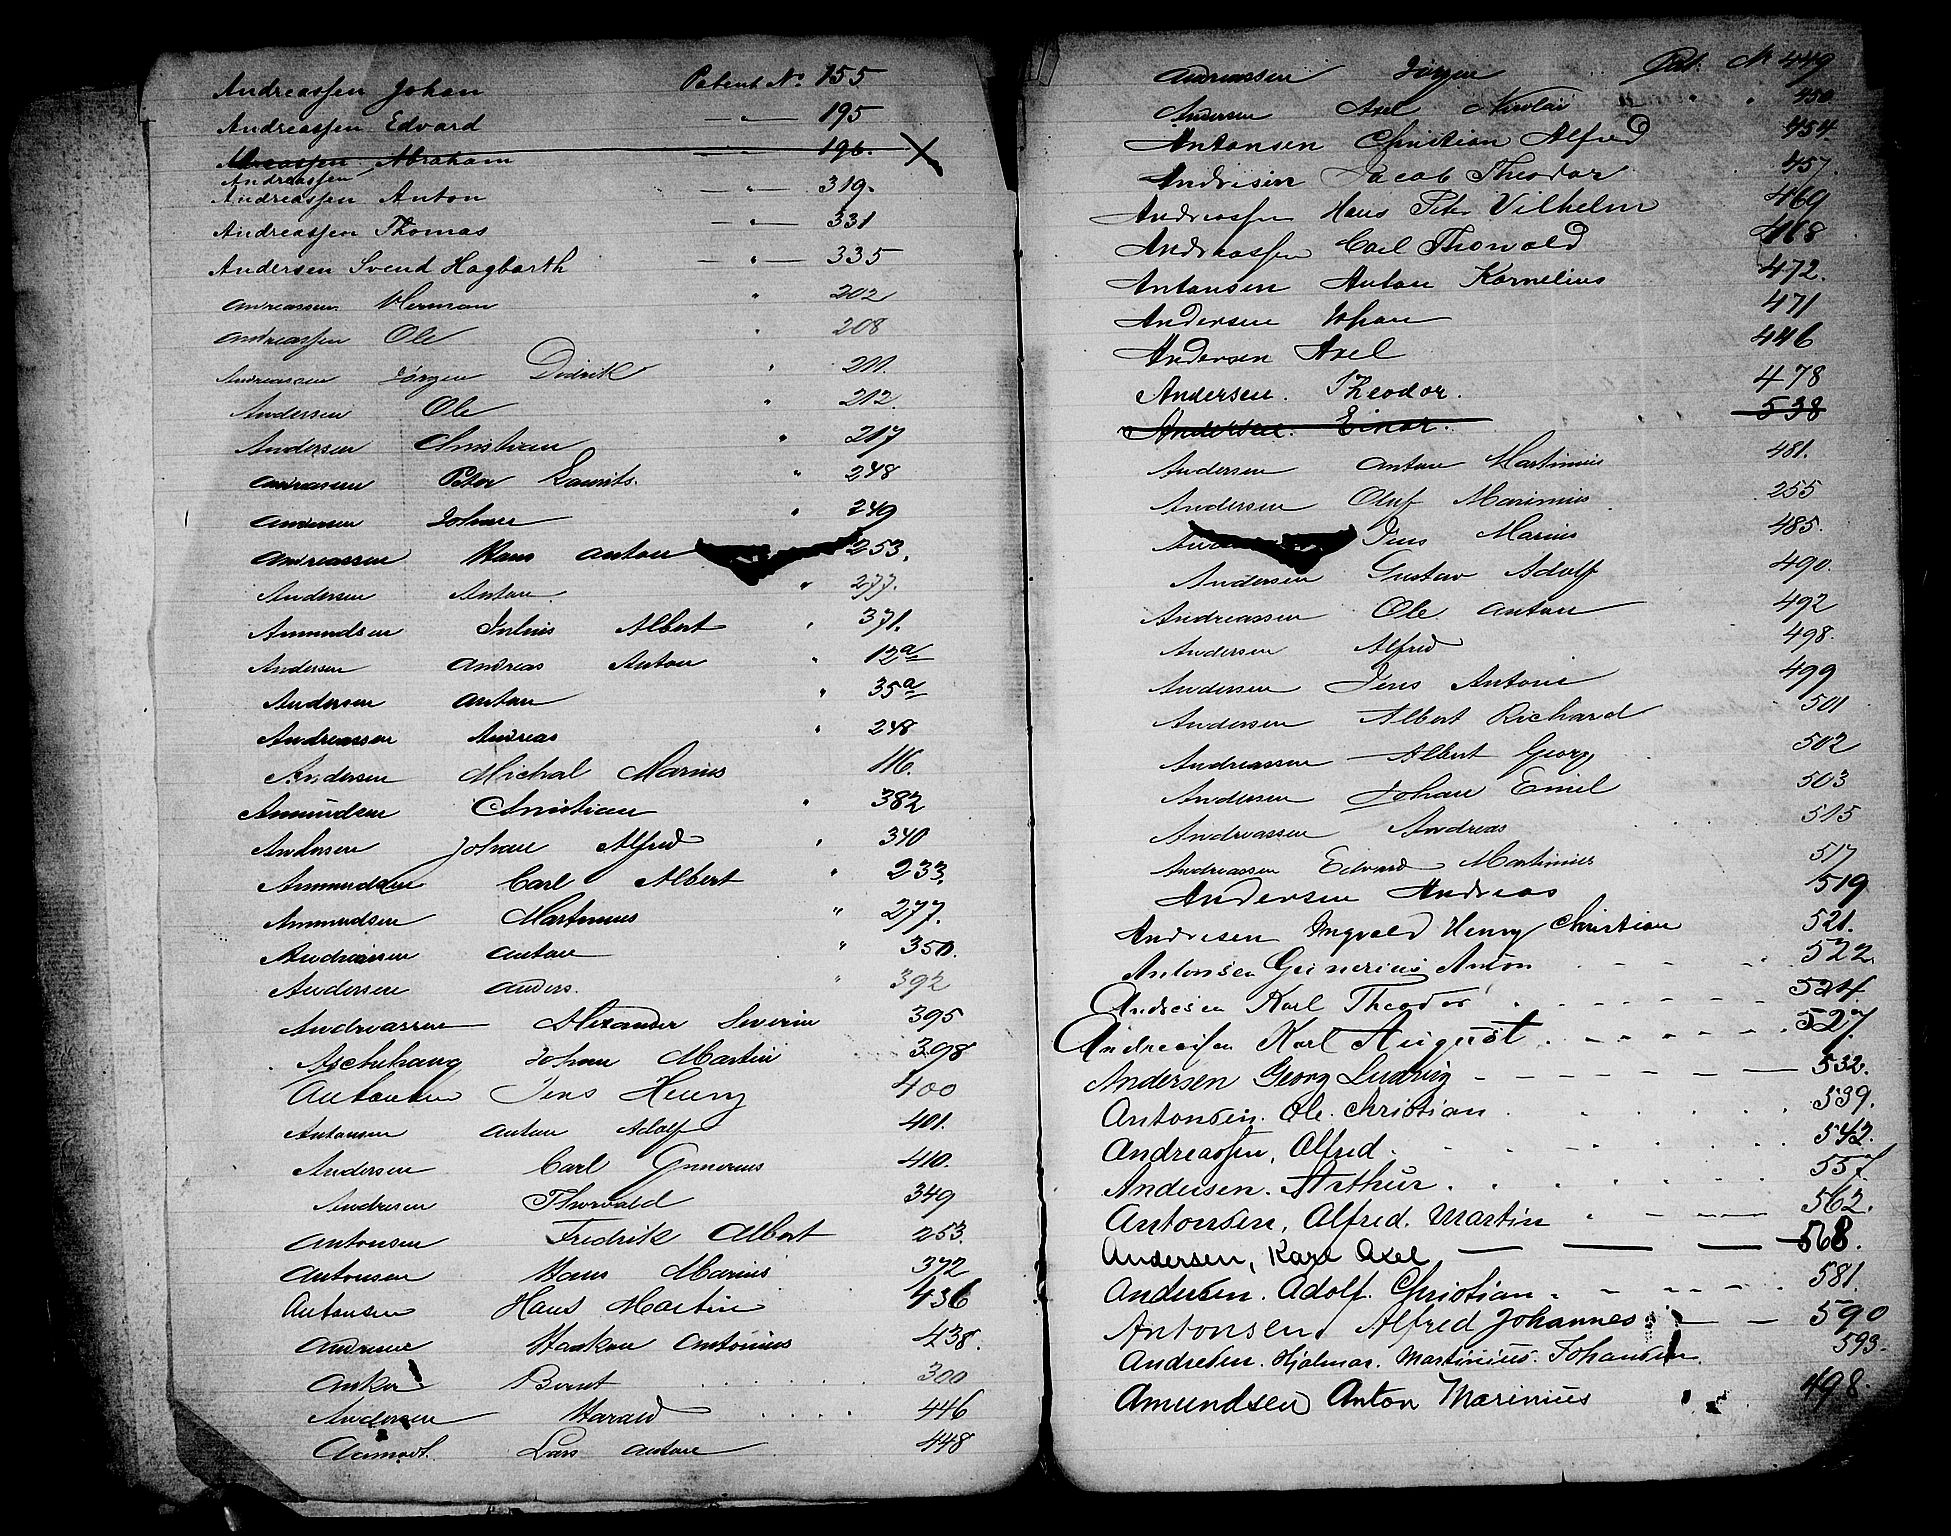 Andreassen Johan Patent No. 155
Andreassen Edvard — " — 195
Andreassen Abraham — " — 196. X
Andreassen
Andreassen Anton — " — 319.
Andreassen Thomas — " — 331
Andersen Svend Hagbarth — " — 335
Andreassen Herman " 202
Andreassen Ole " 208
Andreassen Jørgen Didrik " 211.
Andersen Ole " 212.
Andersen Christian " 217
Andreassen Peter Laurits. " 248
Andersen Johan " 249
Andreassen Hans Anton 253.
Andersen Anton " 277.
Amundsen Julius Albert " 371.
Andersen Andreas Anton " 12a
Andersen Anton " 35a
Andreassen Andreas " 248
Andersen Michal Marius 116.
Amundsen Christian " 382
Andersen Johan Alfred " 340
Amundsen Carl Albert " 233.
Amundsen Martinius " 277.
Andreassen Anton " 350.
Andersen Anders. " 392
Andreassen Alexander Severin 395
Aschehaug Johan Martin 398
Antonsen Jens Henry 400
Antonsen Anton Adolf 401.
Andersen Carl Gunerius 410.
Andresen Thorvald 349
Antonsen Fredrik Albert 253.
Antonsen Hans Marius 372
Antonsen Hans Martin 436
Andresen Haakon Antonius 438.
Anker Bernt 300
Andersen Harald 446
Aamodt. Lars Anton 448
Andreassen Jørgen Pat. No 449
Andersen Axel Nicolai " " 450
Antonsen Christian Alfred 454.
Andresen Jacob Theodor 457.
Andreassen Hans Peter Vilhelm 469
Andreassen Carl Thorvald 468
Antonsen Anton Kornelius 472.
Andersen Johan 471
Andersen Axel 446
Andersen. Theodor. 478
Andersen. Einar. 538
Andersen Anton Martinius 481.
Andersen Oluf Marinius 255
Jens Marius 485.
Andersen Gustav Adolf 490.
Andreassen Ole Anton 492
Andersen Alfred 498.
Andersen Jens Antoni 499
Andersen Albert Richard 501
Andreassen Albert Georg 502
Andersen Johan Emil 503
Andreassen Andreas 515
Andreassen Edvard Martinius 517
Andersen Andreas 519
Andresen Ingvald Henry Christian 521.
Antonsen Gunerius Anton 522.
Andresen Karl Theodor 524
Andreassen Karl August 527.
Andersen Georg Ludvig 532.
Antonsen. Ole. Christian 539.
Andreassen, Alfred. 542.
Andersen. Arthur. 557
Antonsen, Alfred. Martin 562.
Andersen, Karl Axel 568.
Andersen. Adolf. Christian. 581.
Antonsen, Alfred Johannes 590
Andresen. Hjalmar. Martinius. Johansen. 593.
Amundsen Anton Marinius 498.